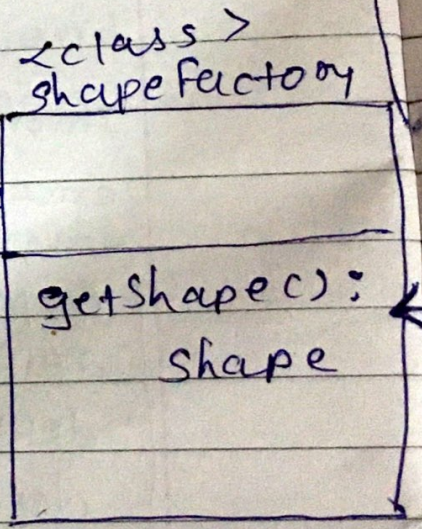 <class>
shapeFactory
getShape():
shape